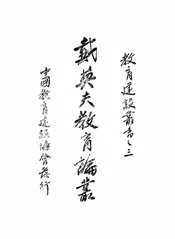 教育建設叢書之三
戴奘夫教育論叢
中國教育建設協會發行